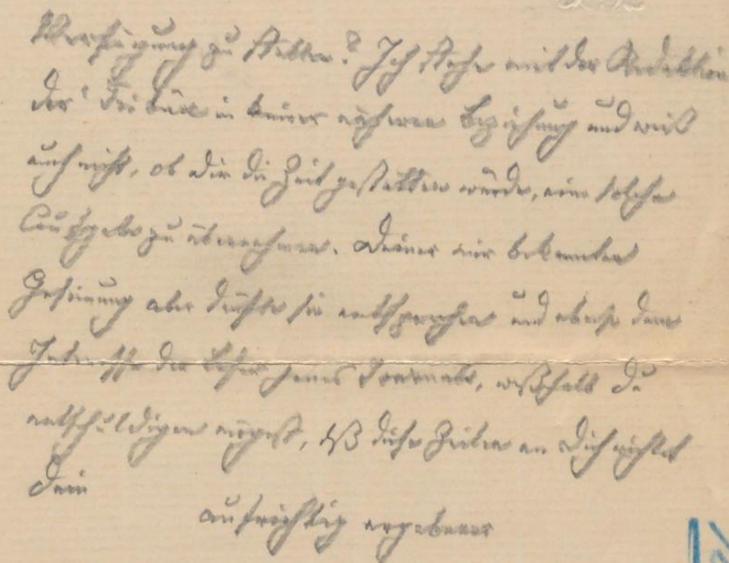 Verfügung zu stellen? Ich stehe mit der Redaktion
der Tribüne in keiner näheren Beziehung und weiß
auch nicht, ob dir die Zeit gestatten würde, eine solche
Aufgabe zu übernehmen. Deiner mir bekannten
Gesinnung aber dürfte sie entsprechen und ebenso dem
Interesse der Leser jenes Journals, weßhalb Du
entschuldigen mögest, daß diese Zeilen an Dich richtet
Dein
aufrichtig ergebener